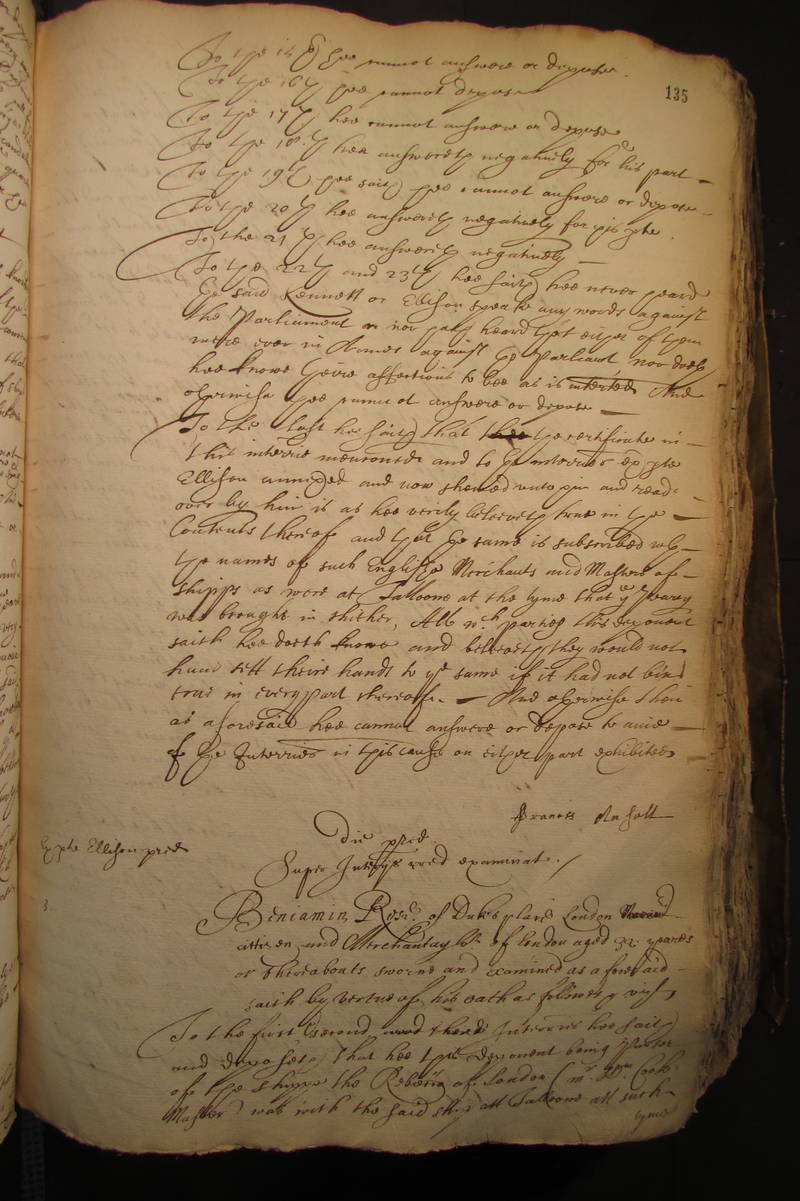 135
To the 15th hee cannot answere or depose.
To the 16th hee cannot depose
To the 17th hee cannot answere or depose
To the 18th hee answereth negatively for his part
To the 19th hee saith hee cannot answere or depose
To the 20th hee answereth negatively for his pte.
To the 21th hee answereth negatively
To the 22th and 23th hee saith hee never heard
the said Kennett or Ellison speake any words against
the Parliament or nor hath heard that either of them
were ever in Armes against the Parliamt nor doth
hee knowe theire affections to bee as is interrte And
otherwise hee cannot answere or depose
To the last hee saith that the certificate in
this interrie menconed and to the interries ex pte
Ellison annexed and now shewed unto him and read
over by him is as hee verily beleeveth true in the
Contents thereof and that the same is subscribed wth
the names of such English Merchants and Masters of
shipps as were at Salloone at the tyme that ye
was brought in thither, All wch parties this deponent
saith hee doeth knowe and beleeveth they would not
have sett theire hands to ye same if it had not bine
true in every part thereofe. And otherwise then
as aforesaid hee cannot answere or depose to anie
of the Interries in this cause on either part exhibited
Francis
Die pred.
Ex pte Ellison pred
Super Interrys pred examinat.
3
Beniamin of Dukes place London
Citizen and Merchantaylor of London aged 32 yeares
or thereabouts sworne and examined as aforesaid
saith by vertue of his oath as followeth vizt,
To the first second and third Interries hee saith
and deposeth That hee this deponent being
of the shipp the Rebecca of London (mr Wm Cock
Master) was with the said ship att Salloone att such
tyme